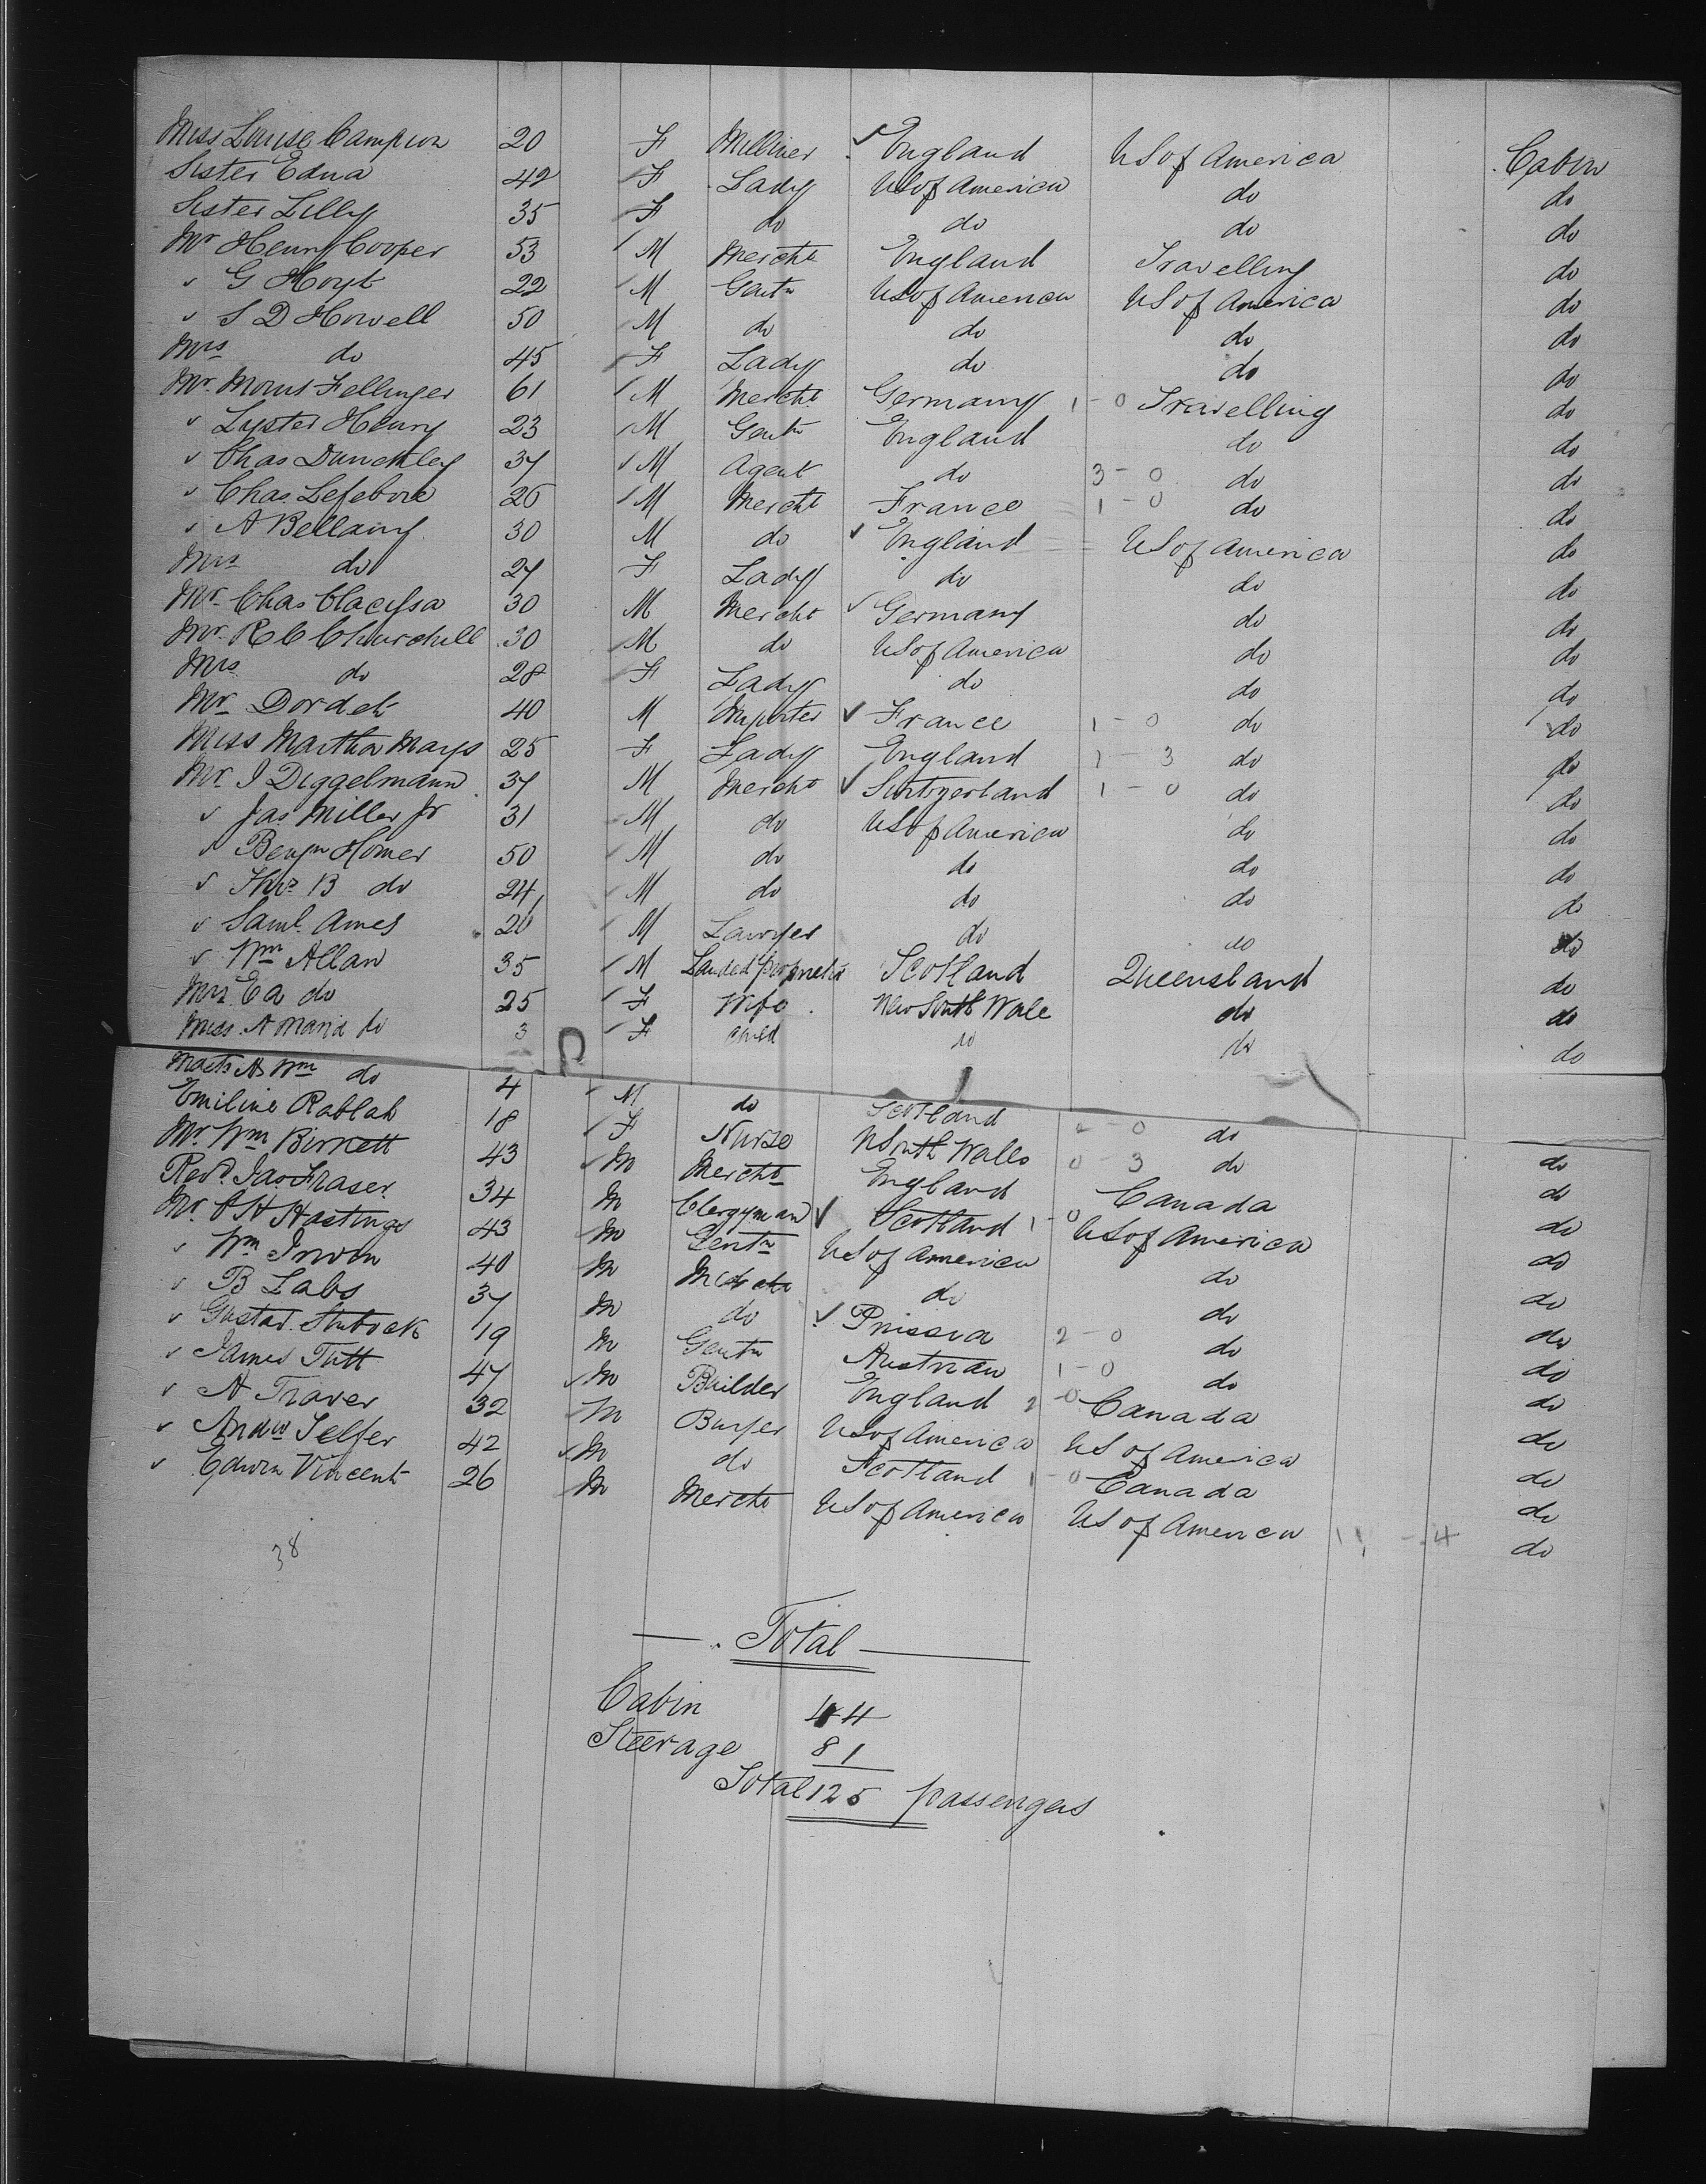 Miss Louise Campion 20 F Milliner ✓ England US of America Cabin
Sister Edna 42 F Lady US of America do do
Sister Lilly 35 F do do do do
Mr Henry Cooper 53 M Mercht England Travelling do
✓ G Hoyt 22 M Gentn US of America US of America do
✓ S D Howell 50 M do do do do
Mrs do 45 F Lady do do do
Mr. Morris Fellinger 61 M Mercht Germany 1 - 0 Travelling do
✓ Lyster Henry 23 M Gentn England do do
✓ Chas Dunckley 37 M Agent do 3 - 0 do do
✓ Chas Lefebvre 26 M Mercht France 1 - 0 do do
✓ A Bellamy 30 M do ✓ England US of America do
Mrs do 27 F Lady do do do
Mr. Chas 30 M Mercht ✓ Germany do do
Mr. R C Churchill 30 M do US of America do do
Mrs do 28 F Lady do do do
Mr Dordet 40 M Importer ✓ France 1 - 0 do do
Miss Martha Mays 25 F Lady England 1 - 3 do do
Mr. J Diggelmann 37 M Mercht ✓ Switzerland 1 - 0 do do
✓ Jas Miller Jr 31 M do US of America do do
✓ Benjn Homer 50 M do do do do
✓ Thos B do 24 M do do do do
✓ Saml Ames 20 M Lawyer do do do
✓ Wm Allan 35 M Landed Proprietor Scotland Queensland do
Mrs E A do 25 F Wife New South Wale do do
Miss A Maria do 3 F Child do do do
Mastr A Wm do 4 M do Scotland 2 - 0 do do
Emiline Rablah 18 F Nurse N South Wales 0 - 3 do do
Mr. Wm Birnett 43 M Mercht England Canada do
Revd Jas Fraser 34 M Clergyman ✓ Scotland 1 - 0 US of America do
Mr. H Hastings 43 M Gentn US of America do do
✓ Wm Irwin 40 M Mercht do do do
✓ B Labs 37 M do ✓ Prussia 2 - 0 do do
✓ Gustav 19 M Gentn Austrian 1 - 0 do do
✓ James Tutt 47 M Builder England 2 - 0 Canada do
✓ A Traver 32 M Buyer US of America US of America do
✓ Andw Telfer 42 M do Scotland 1 - 0 Canada do
✓ Edwin Vincent 26 M Mercht US of America US of America 11 - 4 do
38
Total
Cabin 44
Steerage 81
Total 125 passengers